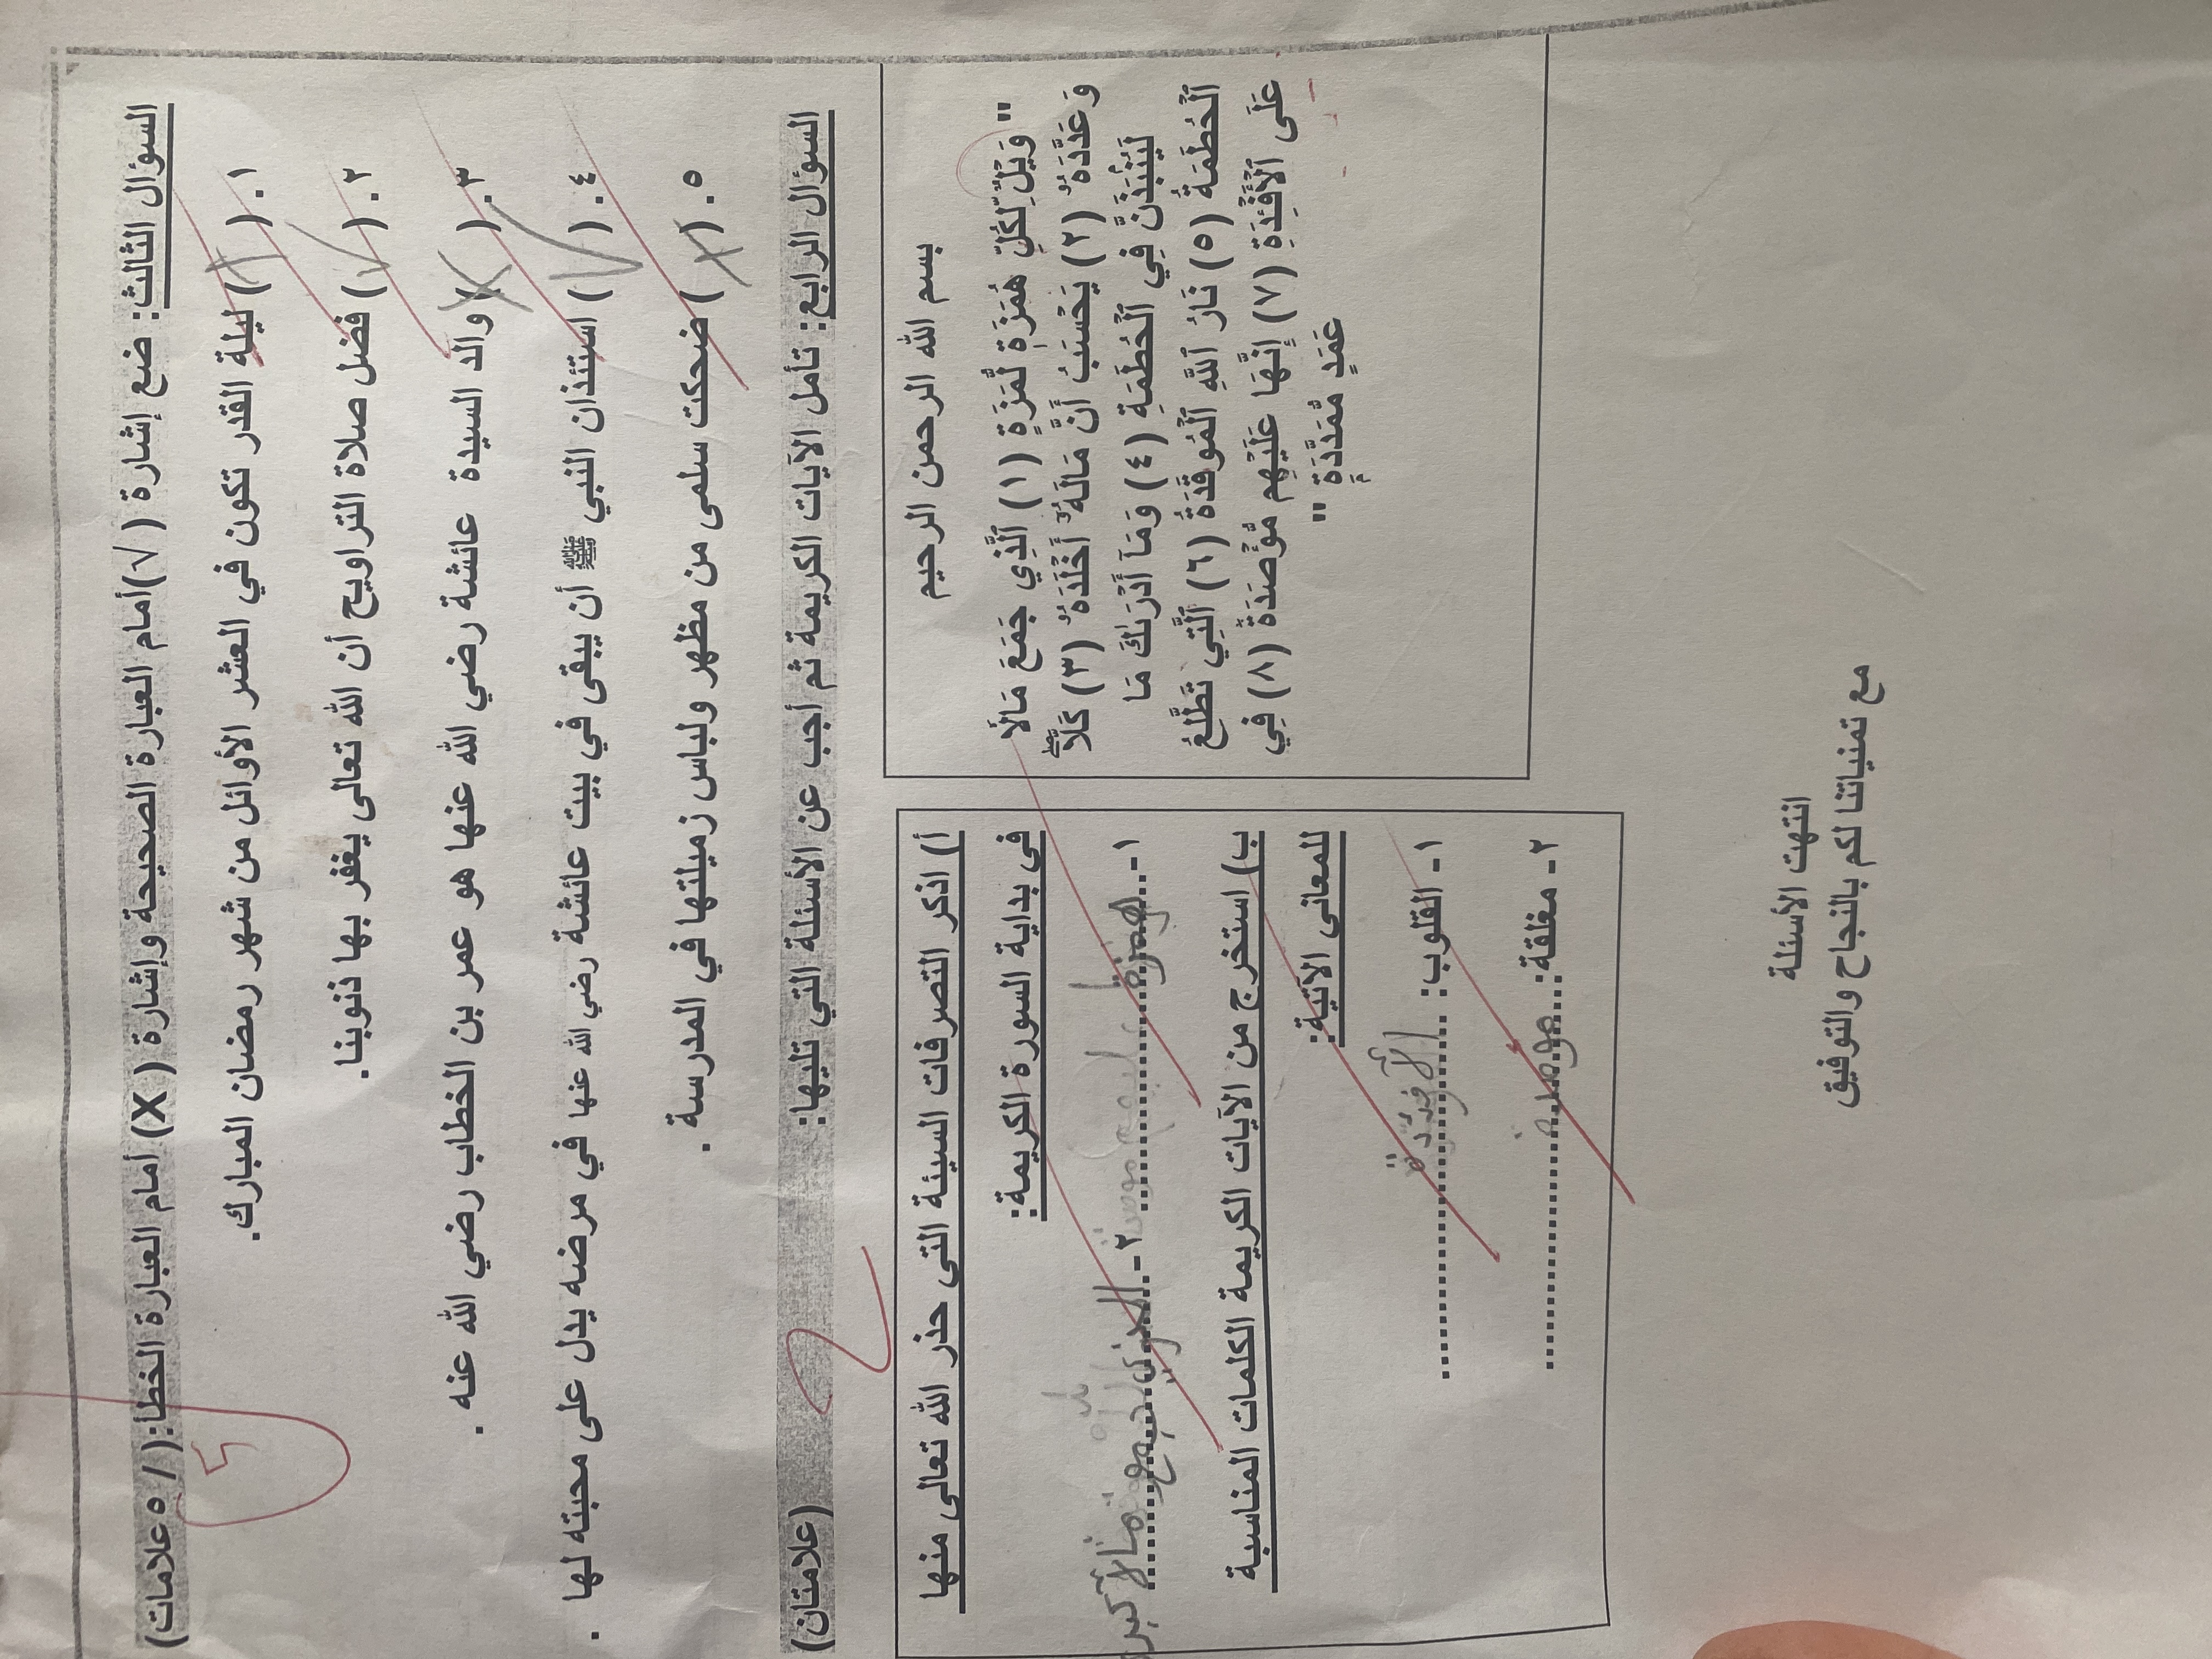 السؤال الثالث: ضع إشارة (√) أمام العبارة الصحيحة وإشارة (X) أمام العبارة الخطأ: ( / ٥ علامات)
5
١. (X) ليلة القدر تكون في العشر الأوائل من شهر رمضان المبارك.
٢. (√) فضل صلاة التراويح أن الله تعالى يغفر بها ذنوبنا.
٣. (X) والد السيدة عائشة رضي الله عنها هو عمر بن الخطاب رضي الله عنه .
٤. (√) استئذان النبي ﷺ أن يبقى في بيت عائشة رضي الله عنها في مرضه يدل على محبته لها .
٥. (X) ضحكت سلمى من مظهر ولباس زميلتها في المدرسة .
السؤال الرابع: تأمل الآيات الكريمة ثم أجب عن الأسئلة التي تليها: (علامتان)
2
بسم الله الرحمن الرحيم
" وَيْلٌ لِّكُلِّ هُمَزَةٍ لُّمَزَةٍ (١) ٱلَّذِي جَمَعَ مَالًا
وَعَدَّدَهُۥ (٢) يَحْسَبُ أَنَّ مَالَهُۥٓ أَخْلَدَهُۥ (٣) كَلَّاۖ
لَيُنۢبَذَنَّ فِي ٱلْحُطَمَةِ (٤) وَمَآ أَدْرَىٰكَ مَا
ٱلْحُطَمَةُ (٥) نَارُ ٱللَّهِ ٱلْمُوقَدَةُ (٦) ٱلَّتِي تَطَّلِعُ
عَلَى ٱلْأَفْـِٔدَةِ (٧) إِنَّهَا عَلَيْهِم مُّؤْصَدَةٌ (٨) فِي
عَمَدٍ مُّمَدَّدَةٍۭ "
أ) اذكر التصرفات السيئة التي حذر الله تعالى منها
في بداية السورة الكريمة:
١- الهمزة ٢- الذي
ب) استخرج من الآيات الكريمة الكلمات المناسبة
للمعاني الآتية:
١- القلوب: الأفئدة
٢- مغلقة: موصدة
انتهت الأسئلة
مع تمنياتنا لكم بالنجاح والتوفيق